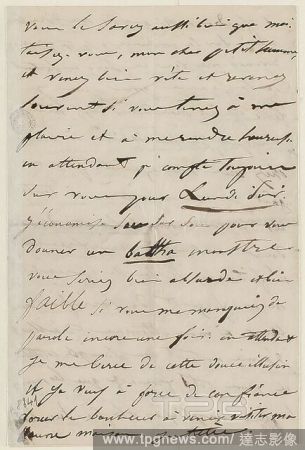 vous le savez aussi bien que moi
taisez vous, mon cher petit homme
et venez bien vite et revenez
souvent si vous tenez à me
plaire et à me rendre heureuse
en attendant je compte toujours
sur vous pour Lundi soir
j'économise sou sur sou pour vous
donner un balthazar monstre
vous seriez bien absurde et bien
faible si vous me manquiez de
parole encore une fois. en attendant
je me berce de cette douce illusion
et je veux à force de confiance
forcer le bonheur à venir
maison
www.tpgnews.com / 達志影像